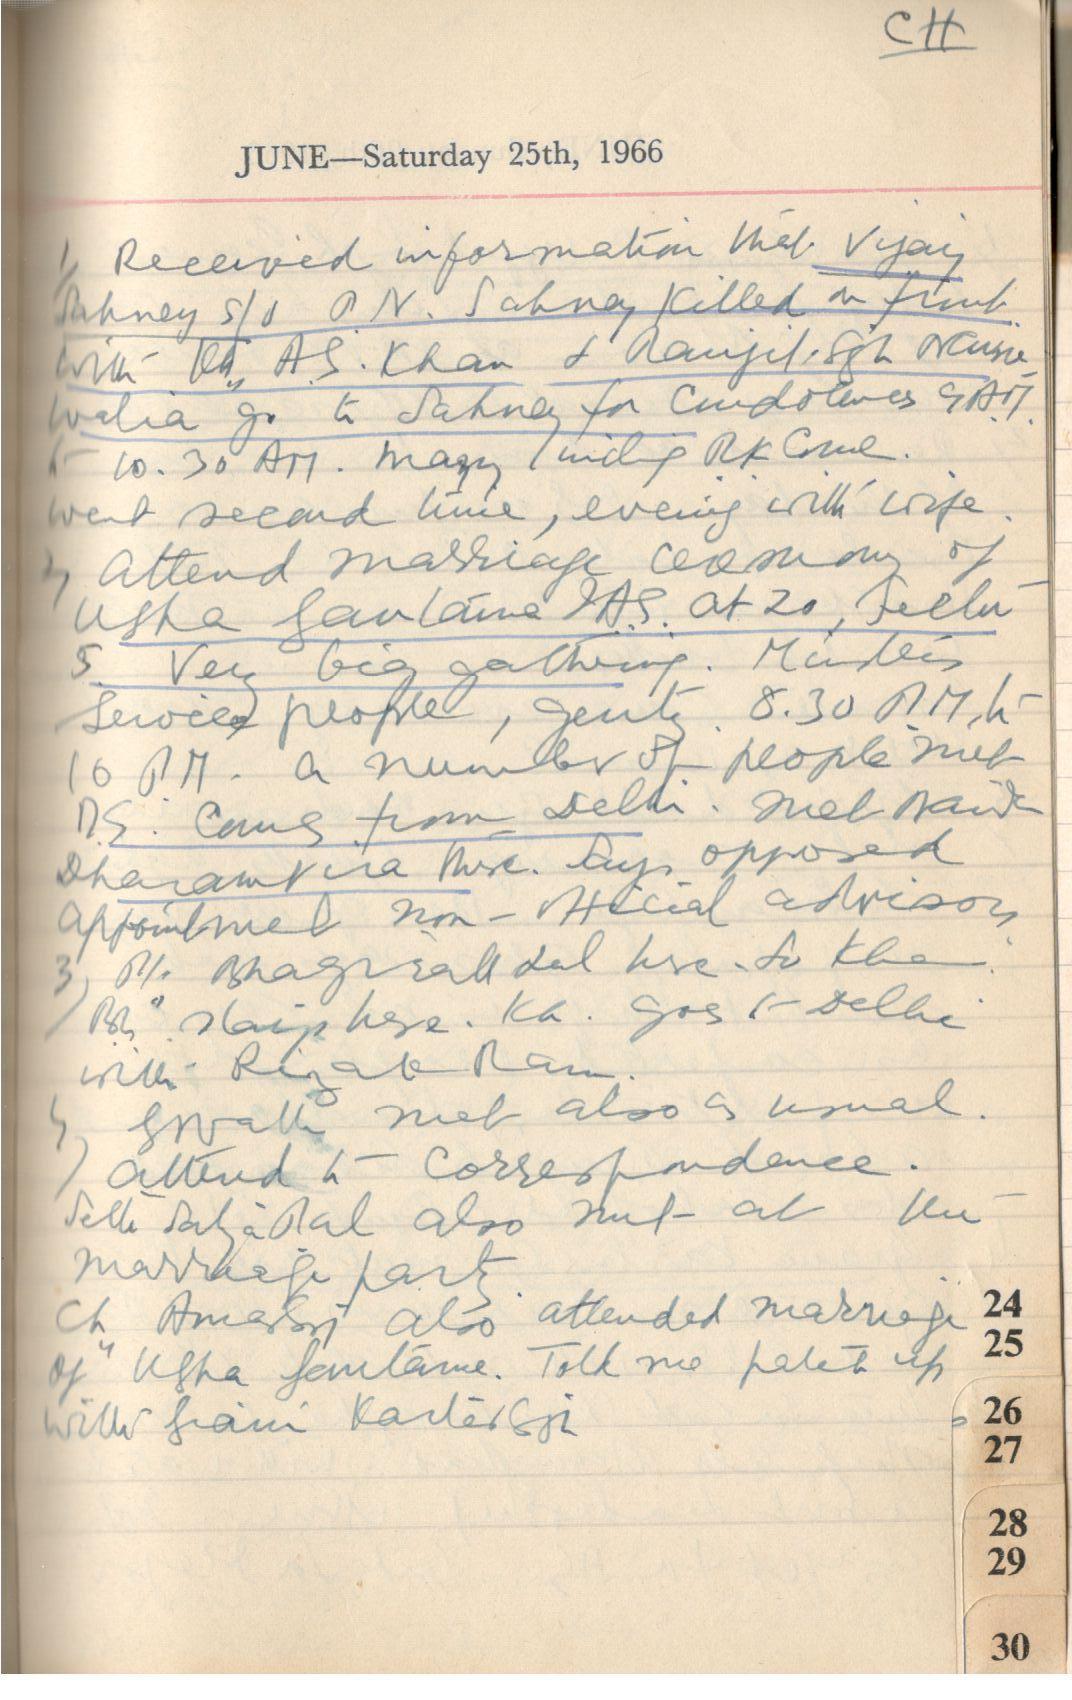 CH
JUNE—Saturday 25th, 1966
1, Received information that Vijay
Sahney s/o P N. Sahney killed on front
with Kh, A.S. Khan & Ranjit Sgh
walia go to Sahney for Condolences 9 AM
to 10.30 AM. many RK
went second time, evening with wife.
2, Attend marriage ceremony of
Usha Gautama IAS. at 20, Sector
5. Very big gathering.
Services people, gents. 8.30 P.M. to
10 PM. a number of people met
from Delhi. met
Dharamvira there. Says opposed
appointmet non-official advisors
3, Pt. Bhagirath Lal here.
here. Kh. goes to Delhi
with Rizak Ram.
4, met also as usual.
5, attend to Correspondence.
Seth Satya Pal also met at the
marriage party.
Ch also attended marriage
of Usha Gautama. Told me patch up
with Giani Kartar Sgh
24
25
26
27
28
29
30